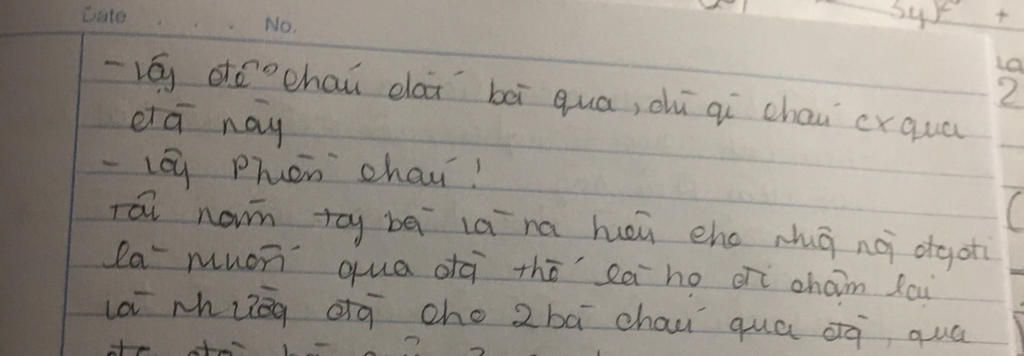 Date No.
- Vậy để cháu dắt bà qua, dù gì cháu cx qua
đg này
- Vậy phiền cháu!
Tôi nắm tay bà và ra hiệu cho những ng đg đi
là muốn qua đg thế là họ đi chậm lại
và nhường đg cho 2 bà cháu qua đg, qua